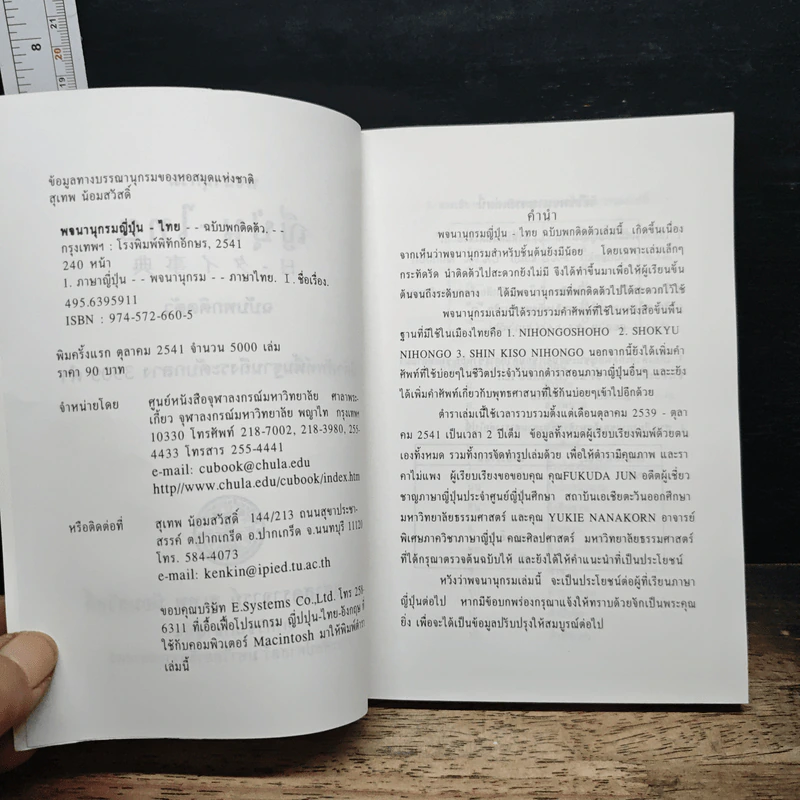 8
21
20
19
ข้อมูลทางบรรณานุกรมของหอสมุดแห่งชาติ
สุเทพ น้อมสวัสดิ์
พจนานุกรมญี่ปุ่น - ไทย - - ฉบับพกติดตัว. - -
กรุงเทพฯ : โรงพิมพ์พิทักอักษร, 2541
240 หน้า
1. ภาษาญี่ปุ่น - - พจนานุกรม - - ภาษาไทย. I . ชื่อเรื่อง.
495.6395911
ISBN : 974-572-660-5
พิมครั้งแรก ตุลาคม 2541 จำนวน 5000 เล่ม
ราคา 90 บาท
จำหน่ายโดย ศูนย์หนังสือจุฬาลงกรณ์มหาวิทยาลัย ศาลาพระ-
เกี้ยว จุฬาลงกรณ์มหาวิทยาลัย พญาไท กรุงเทพฯ
10330 โทรศัพท์ 218-7002, 218-3980, 255-
4433 โทรสาร 255-4441
e-mail: cubook@chula.edu
http//www.chula.edu/cubook/index.htm
หรือติดต่อที่ สุเทพ น้อมสวัสดิ์ 144/213 ถนนสุขาประชา-
สรรค์ ต.ปากเกร็ด อ.ปากเกร็ด จ.นนทบุรี 11120
โทร. 584-4073
e-mail: kenkin@ipied.tu.ac.th
ขอบคุณบริษัท E.Systems Co.,Ltd. โทร 258-
6311 ที่เอื้อเฟื้อโปรแกรม ญี่ปปุ่น-ไทย-อังกฤษ ที่
ใช้กับคอมพิวเตอร์ Macintosh มาให้พิมพ์ตำรา
เล่มนี้
คำนำ
พจนานุกรมญี่ปุ่น - ไทย ฉบับพกติดตัวเล่มนี้ เกิดขึ้นเนื่อง
จากเห็นว่าพจนานุกรมสำหรับชั้นต้นยังมีน้อย โดยเฉพาะเล่มเล็กๆ
กระทัดรัด นำติดตัวไปสะดวกยังไม่มี จึงได้ทำขึ้นมาเพื่อให้ผู้เรียนขั้น
ต้นจนถึงระดับกลาง ได้มีพจนานุกรมที่พกติดตัวไปได้สะดวกไว้ใช้
พจนานุกรมเล่มนี้ได้รวบรวมคำศัพท์ที่ใช้ในหนังสือขั้นพื้น
ฐานที่มีใช้ในเมืองไทยคือ 1. NIHONGOSHOHO 2. SHOKYU
NIHONGO 3. SHIN KISO NIHONGO นอกจากนี้ยังได้เพิ่มคำ
ศัพท์ที่ใช้บ่อยๆในชีวิตประจำวันจากตำราสอนภาษาญี่ปุ่นอื่นๆ และยัง
ได้เพิ่มคำศัพท์เกี่ยวกับพุทธศาสนาที่ใช้กันบ่อยๆเข้าไปอีกด้วย
ตำราเล่มนี้ใช้เวลารวบรวมตั้งแต่เดือนตุลาคม 2539 - ตุลา
คม 2541 เป็นเวลา 2 ปีเต็ม ข้อมูลทั้งหมดผู้เรียบเรียงพิมพ์ด้วยตน
เองทั้งหมด รวมทั้งการจัดทำรูปเล่มด้วย เพื่อให้ตำรามีคุณภาพ และรา
คาไม่แพง ผู้เรียบเรียงขอขอบคุณ คุณFUKUDA JUN อดีตผู้เชี่ยว
ชาญภาษาญี่ปุ่นประจำศูนย์ญี่ปุ่นศึกษา สถาบันเอเชียตะวันออกศึกษา
มหาวิทยาลัยธรรมศาสตร์ และคุณ YUKIE NANAKORN อาจารย์
พิเศษภาควิชาภาษาญี่ปุ่น คณะศิลปศาสตร์ มหาวิทยาลัยธรรมศาสตร์
ที่ได้กรุณาตรวจต้นฉบับให้ และยังได้ให้คำแนะนำที่เป็นประโยชน์
หวังว่าพจนานุกรมเล่มนี้ จะเป็นประโยชน์ต่อผู้ที่เรียนภาษา
ญี่ปุ่นต่อไป หากมีข้อบกพร่องกรุณาแจ้งให้ทราบด้วยจักเป็นพระคุณ
ยิ่ง เพื่อจะได้เป็นข้อมูลปรับปรุงให้สมบูรณ์ต่อไป